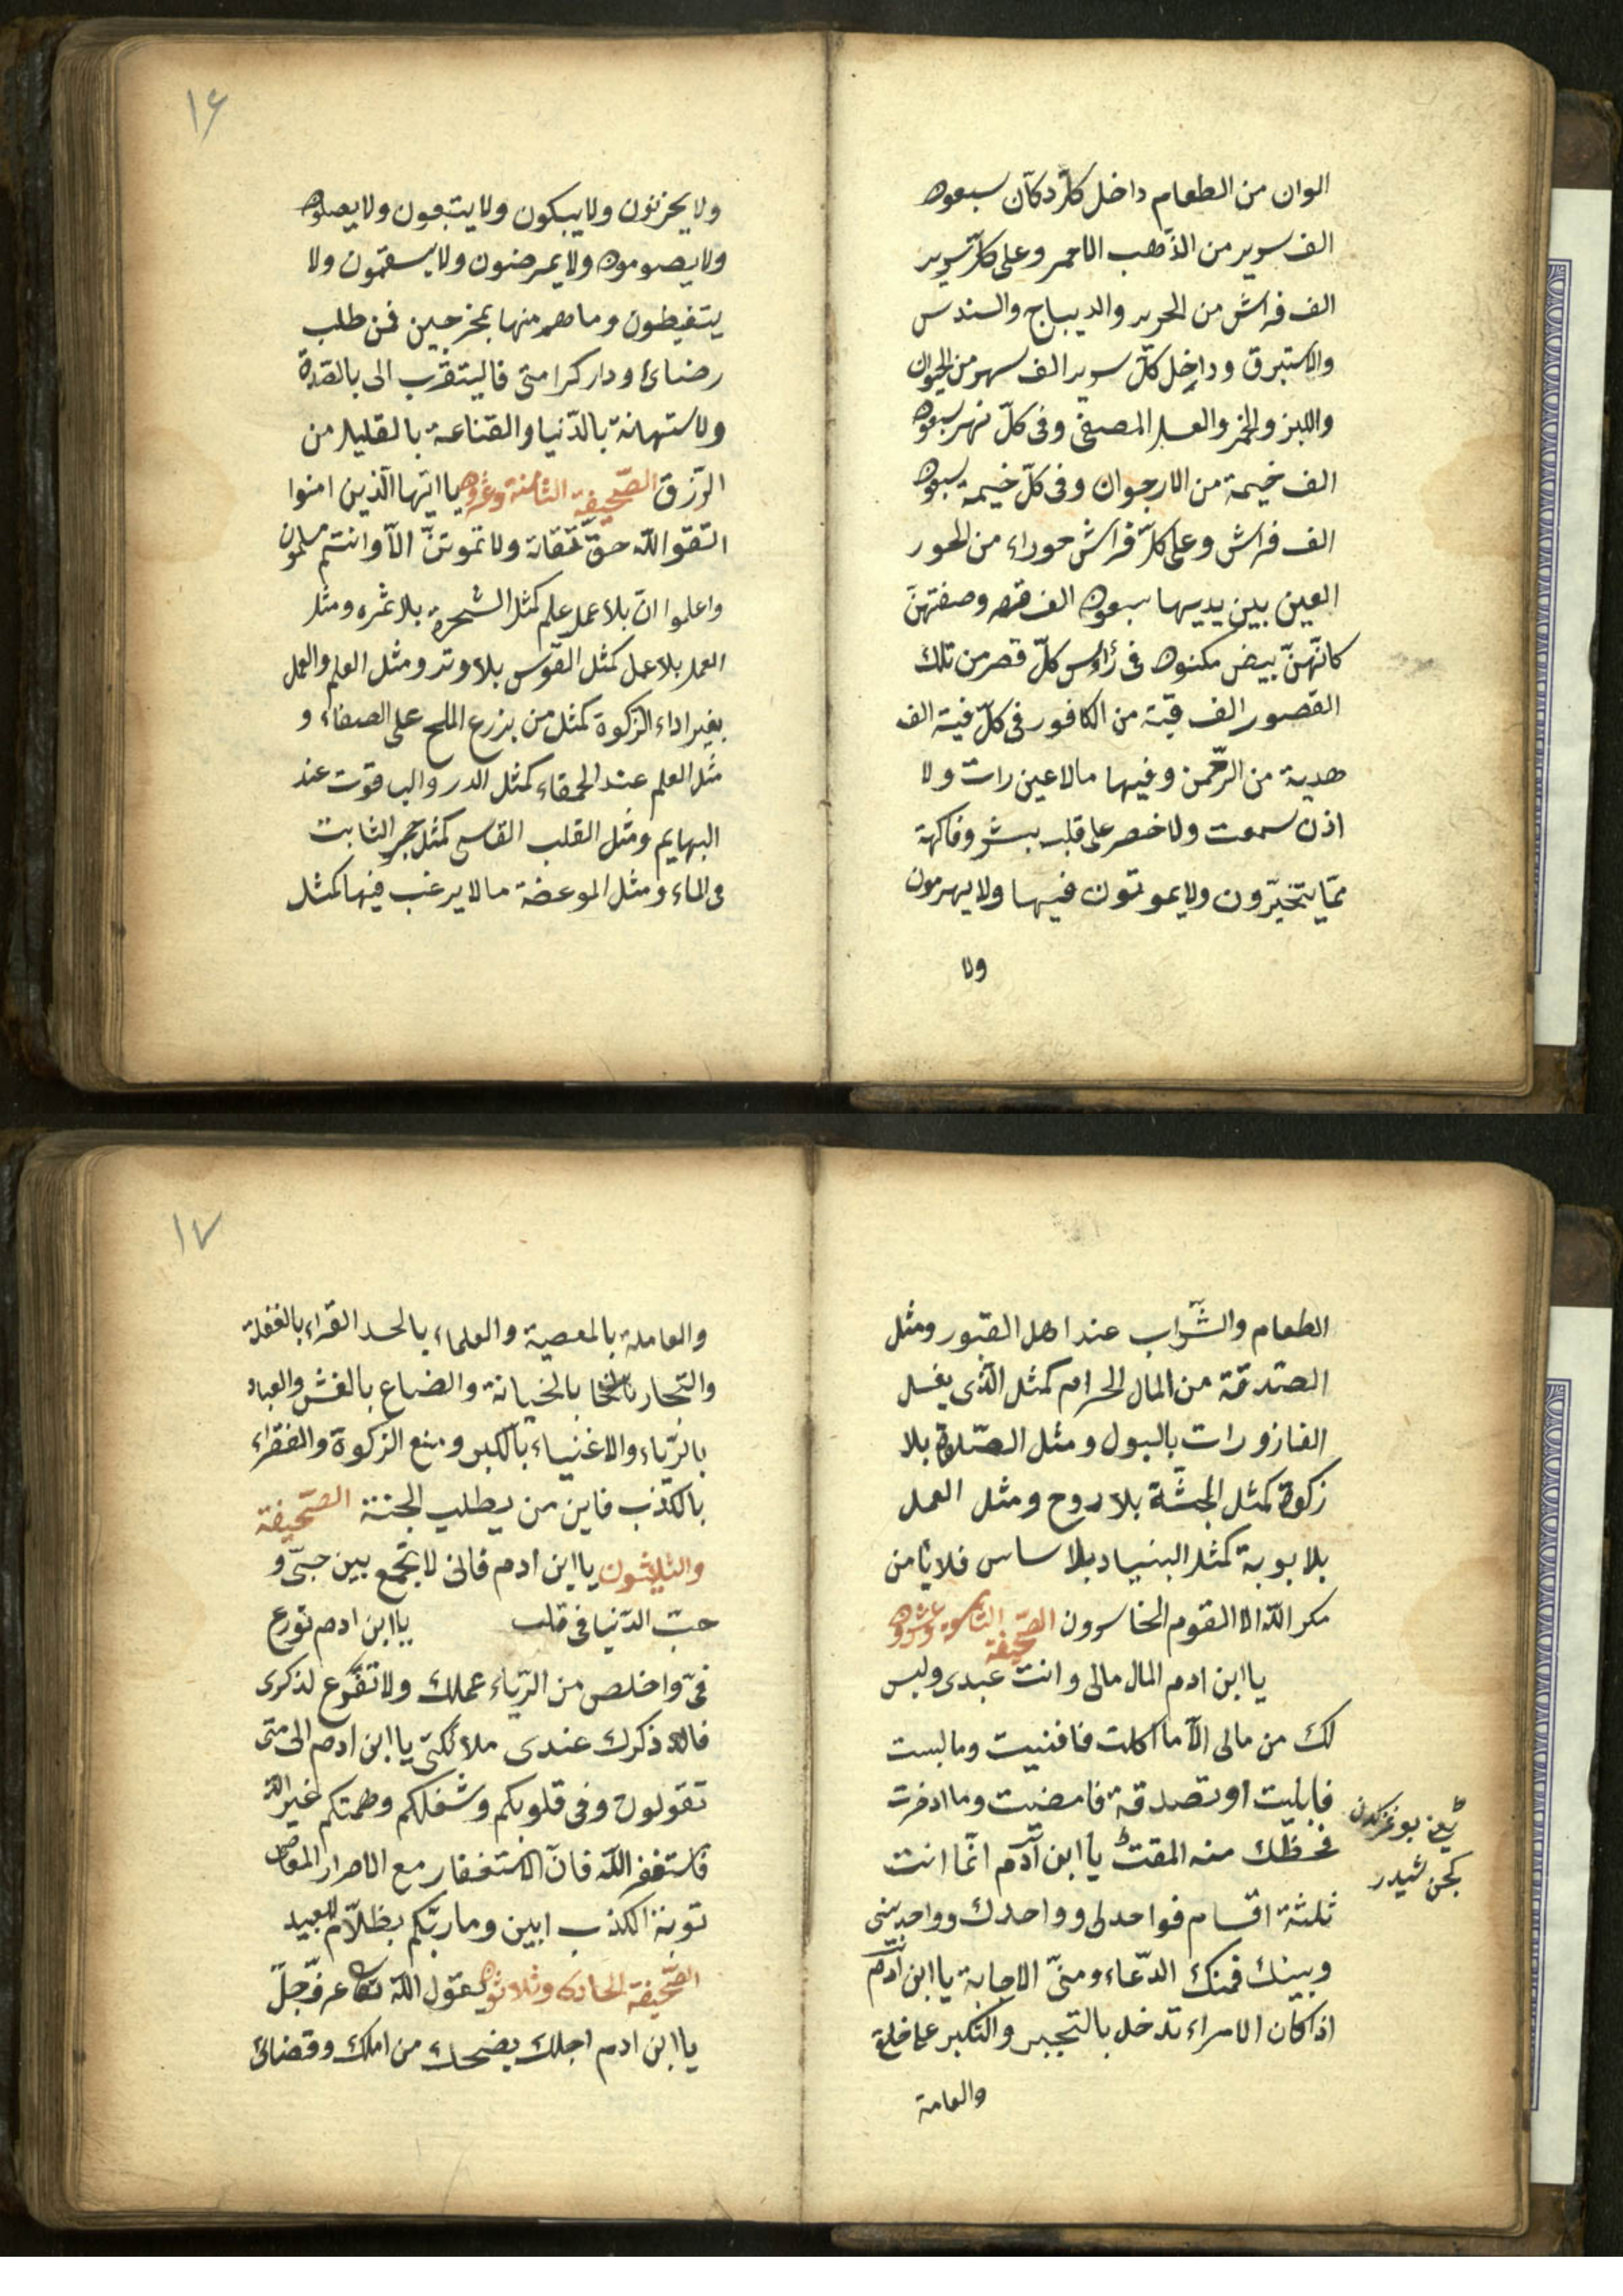 الوان من الطعام داخل كلّ دكآن سبعون
الف سرير من الذّهب الاحمر وعلى كلّ سرير
الف فراش من الحرير والديباج والسندس
والاستبرق وداخل كلّ سرير الف نهر من الحيوان
واللبن والخمر والعسل المصفى وفى كلّ نهر سبعون
الف خيمة من الارجوان وفى كلّ خيمة سبعون
الف فراش وعلى كلّ فراش حوراء من الحور
العين بين يديها سبعون الف وصفتهنّ
كانّهنّ بيض مكنون فى رأوس كلّ قصر من تلك
القصور الف قبة من الكافور فى كلّ قبة الف
هدية من الرّحمن وفيها مالا عين رات ولا
اذن سمعت ولا خصر على قلب بشر وفاكهة
ممّا يتخيّرون ولا يموتون فيها ولا يهرمون
ولا
١٦
ولا يحزنون ولا يبكون ولا يتبعون ولا يصلون
ولا يصومون ولا يمرضون ولا يسقمون ولا
يتغيطون وما هم منها بمخرجين فمن طلب
رضائ ودار كرامتى فاليتقرب الى بالصّدقة
ولاستهانة بالدّنيا والقناعة بالقليل من
الرّزق الصّحيفة الثامنة وعشرون يا ايّها الّذين امنوا
اتقو اللّه حقّ تقاته ولا تموتنّ الاّ وانتم مسلمون
واعلموا انّ بلا عمل علم كمثل الشجرة بلا ثمره ومثل
العمل بلا عمل كمثل القوس بلا وتد ومثل العلم والعمل
بغير اداء الزكوة كمثل من يزرع الملح على الصفاء و
مثل العلم عند الحمقاء كمثل الدر والياقوت عند
البهايم ومثل القلب القاسى كمثل حجر الثابت
فى الماء ومثل الموعضة مالا يرغب فيها كمثل
الطعام والشّراب عند اهل القبور ومثل
الصّدقة من المال الحرام كمثل الّذى يغسل
القازورات بالبول ومثل الصّلاة بلا
زكوة كمثل الجثّة بلا روح ومثل العمل
بلا بوبة كمثل البنياد بلا ساس فلا يأمن
مكر اللّه الا القوم الخاسرون الصّحيفة التاسعة وعشرون
يا ابن ادم المال مالى وانت عبدى وليس
لك من مالى الاّ ما اكلت فافنيت وما لبست
فابليت او تصدقة فامضيت وما ادخرت
فحظّك منه المقت يا ابن آدم انّما انت
ثلثة اقسام فواحد لى وواحد لك وواحد بينى
وبينك فمنك الدّعاء ومنّى الاجابة يا ابن آدم
اذا كان الامراء تدخل بالتجبر والتكبر
والعامة
١٧
والعاملة بالمعصية والعلماء بالحسد القراء بالغفلة
والتجار بالخيانة والضباع بالغش والعباد
بالرّياء والاغنياء بالكبر ومنع الزكوة والفقراء
بالكذب فاين من يطلب الجنة الصّحيفة
والثلاثون يا ابن ادم فانى لا تجمع بين حبّى و
حبّ الدّنيا فى قلب يا ابن ادم تورع
فىّ واخلص من الرّياء عملك ولا تفرّغ لذكرى
فالا ذكرك عندى ملائكتى يا ابن ادم الى متى
تقولون وفى قلوبكم وشغلكم وهمتكم غير اللّه
فاستغفر اللّه فانّ الاستغفار مع الاصرار المعاصى
توبة الكذب ابين وما ربّكم بظلاّم للعبيد
الصّحيفة الحادى وثلاثون يقول اللّه تعالى عز وجلّ
يا ابن ادم اجلك يضحك من املك وقضائ